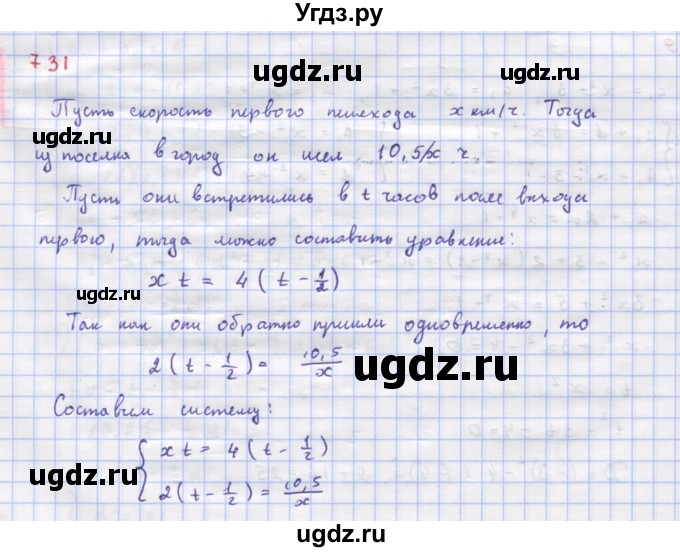 Угдз.ру
731
ugdz.ru ugdz.ru ugdz.ru
Пусть скорость первого пешехода x км/ч. Тогда
из поселка в город он шел 10,5/x ч.
ugdz.ru
Пусть они встретились в t часов после выхода
первого, тогда можно составить уравнение:
x t = 4 ( t - 1/2 )
ugdz.ru
ugdz.ru
Так как они обратно пришли одновременно, то
2 ( t - 1/2 ) = 10,5/x
ugdz.ru
Составим систему:
{ x t = 4 ( t - 1/2 )
2 ( t - 1/2 ) = 10,5/x
ugdz.ru
ugdz.ru
ugdz.ru